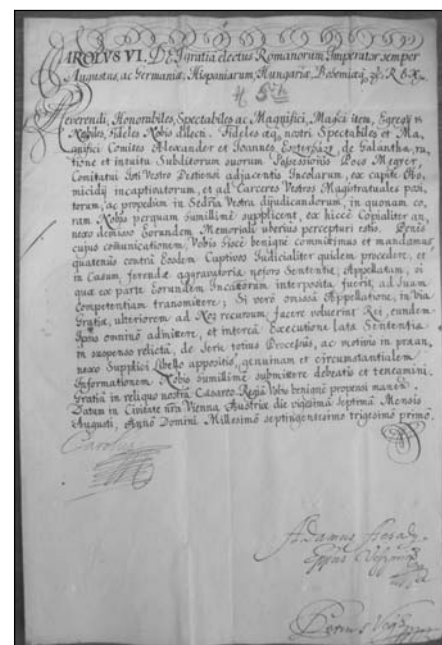 CAROLUS VI. DEI gratia electus Romanorum Imperator semper
Augustus, ac Germaniæ, Hispaniarum, Hungariæ, Bohemiæq, Rex
Reverendi, Honorabiles, Spectabiles ac Magnifici, Magnifici item, Egregii et
Nobiles, Fideles Nobis dilecti. Fideles æq, nostri Spectabiles et Ma-
gnifici Comites Alexander et Joannes Eszterházi de Galantha, ra-
tione et intuitu Subditorum suorum Possessionis Pocs Megyer,
Comitatui Isti Vestro Pestiensi adjacentis Incolarum, ex capite Ho-
micidij incaptivatorum, et ad Carceres Vestros Magistratuales posi-
torum, ac propediem in Sedria Vestra dijudicandorum, in quonam co-
ram Nobis perquam humillime supplicent, ex hicce Copialiter an-
nexo demisso Eorundem Memoriali uberius percepturi estis. Penes
cujus communicationem, Vobis hisce benigne committimus et mandamus,
quatenus contra Eosdem Captivos Judicialiter quidem procedere, et
in Casum ferendæ aggravatoria Sententiæ, Appellatam, si
quæ ex parte Eorundem Incattorum interposita fuerit, ad Suam
Competentiam transmittere; Si vero omissâ Appellatione, in Via
Gratiæ, ulteriorem ad Nos recursum facere voluerint Rei, eundem
Ipsis omnino admittere, et interea Executione latæ Sententiæ
in suspenso relictâ, de Serie totius Processus, ac motivis in præan-
nexo Supplici Libello appositis, genuinam et circumstantialem
Informationem Nobis humillime submittere debeatis et teneamini.
Gratiâ in reliquo nostrâ Cæsareo-Regiâ Vobis benigne propensi manentes.
Datum in Civitate nrâ Vienna Austriæ die vigesimâ septimâ Mensis
Augusti, Anno Domini Millesimo Septingentesimo trigesimo primo.
Carolus
Adamus
Eppus
Petrus Vegh